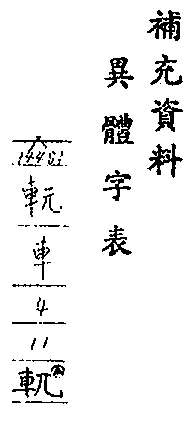 補充資料
異體字表
車
4
11
軏